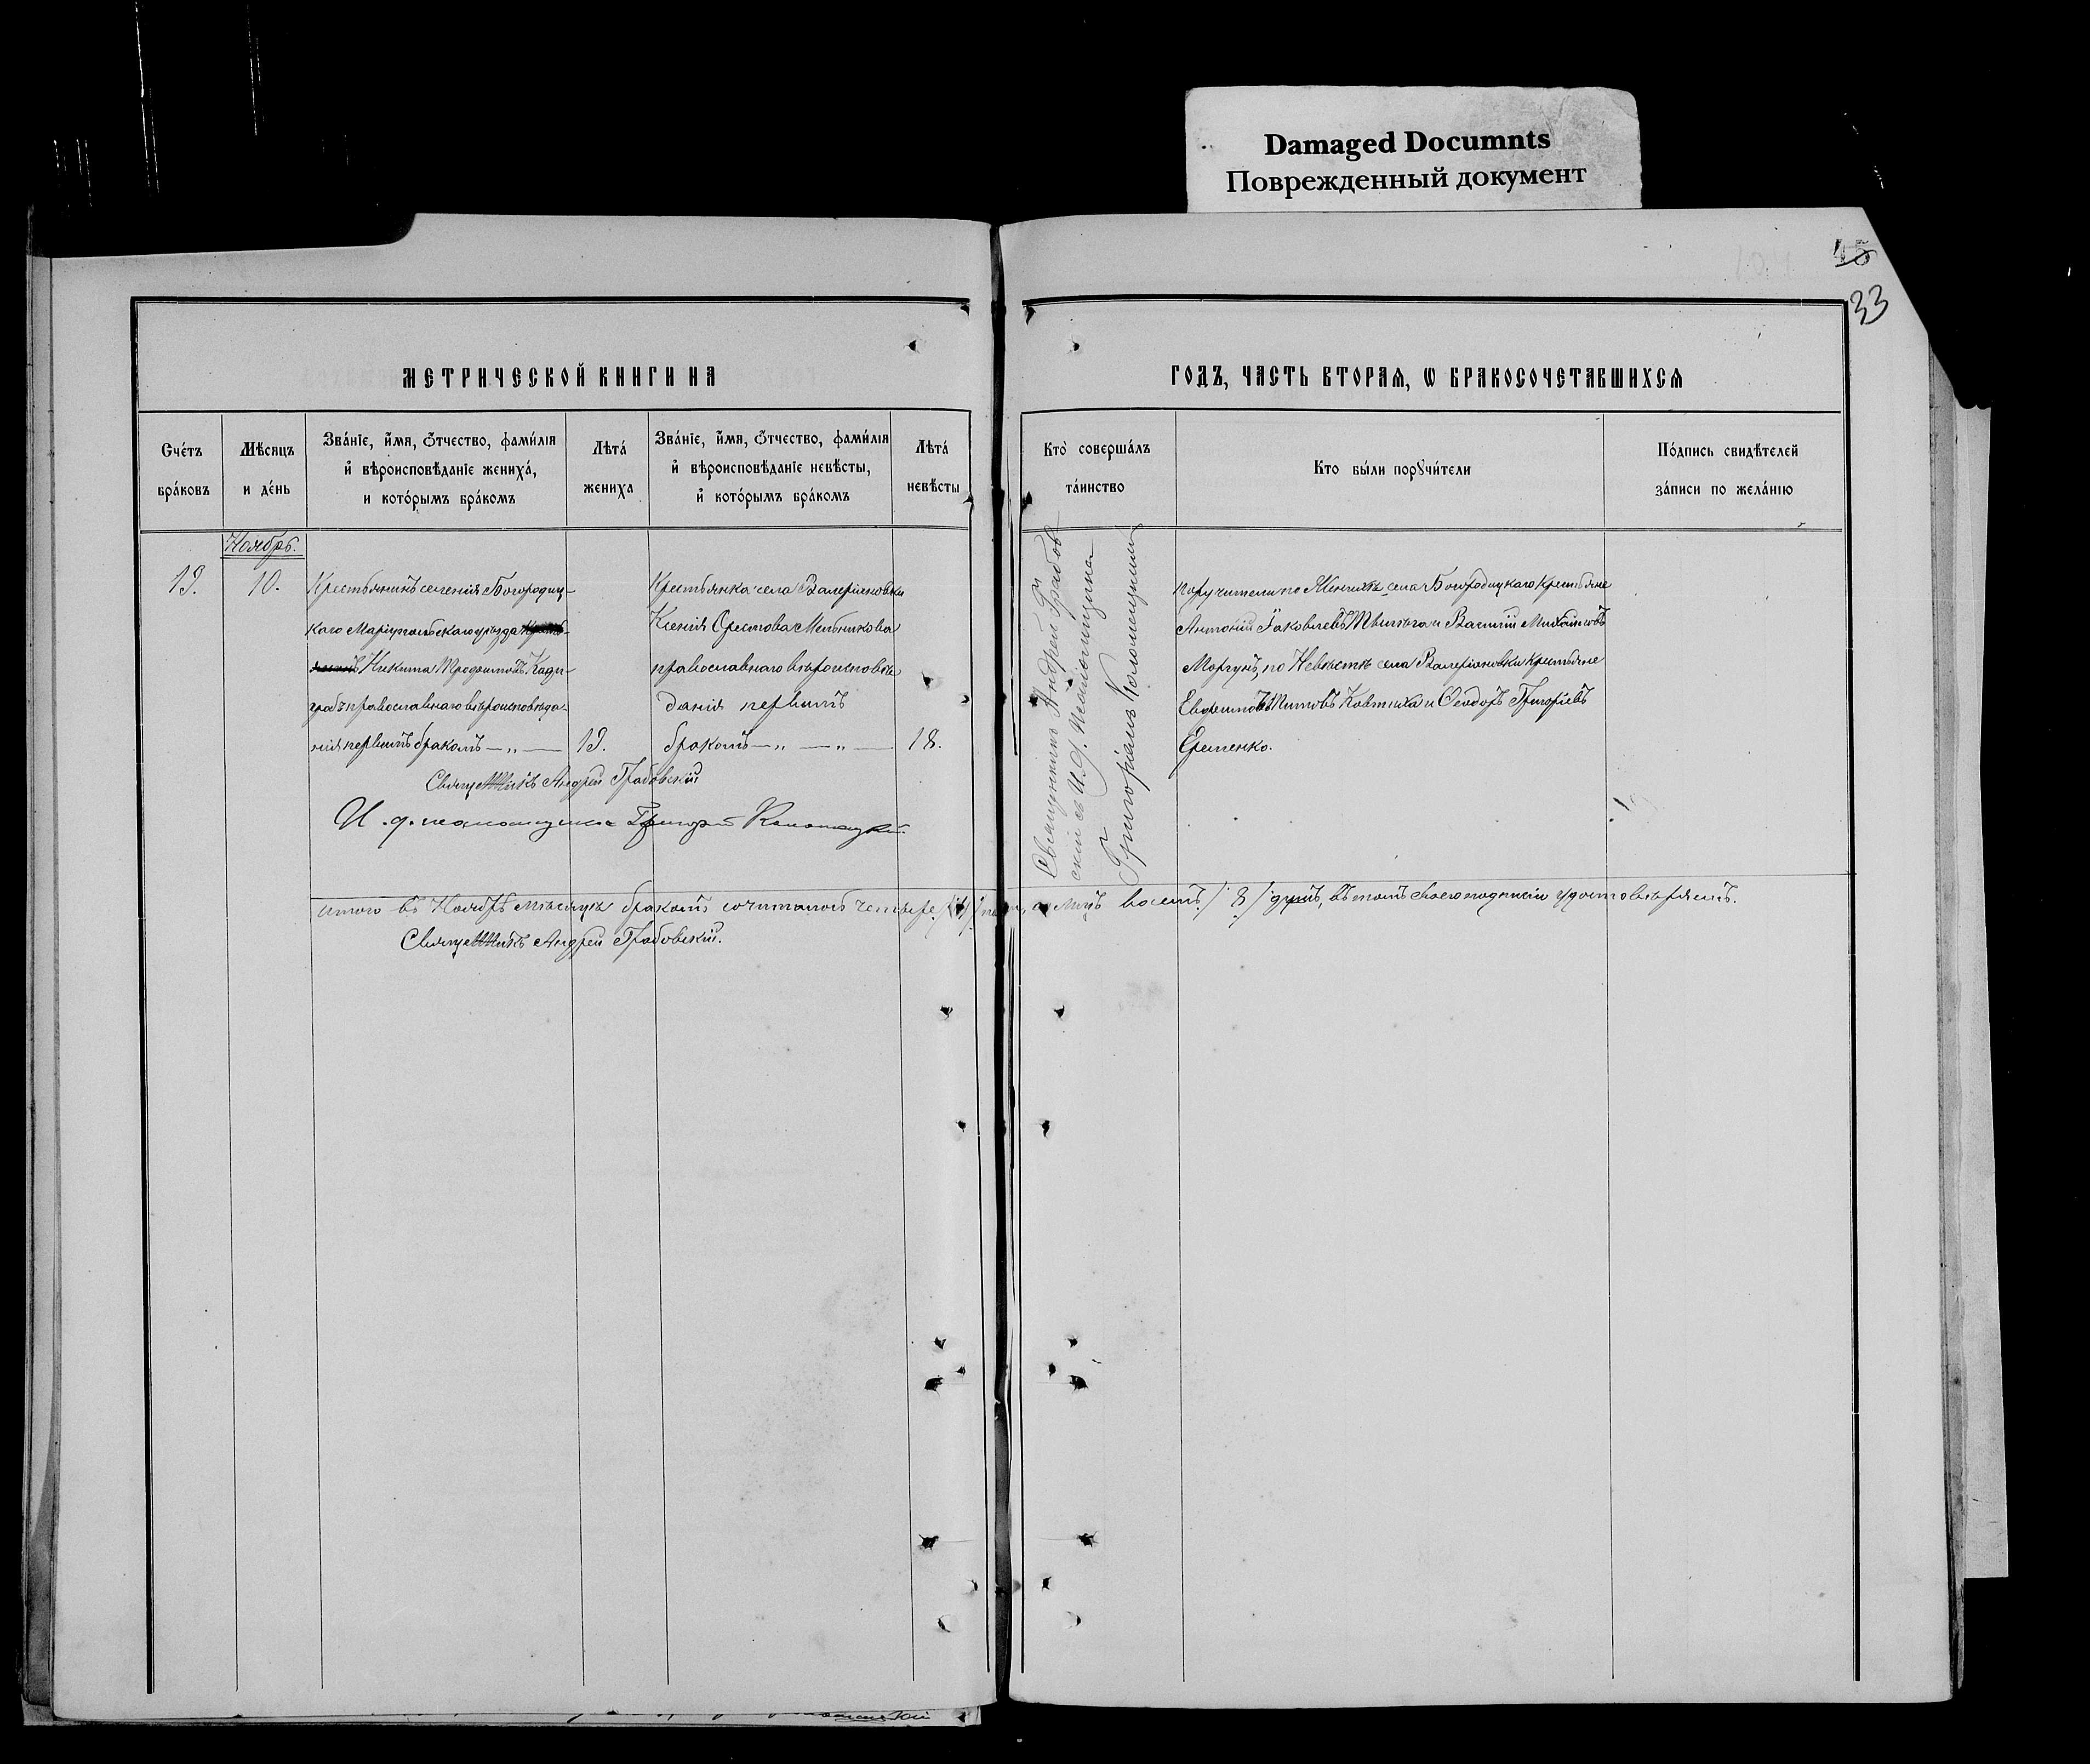 Damaged Documnts
Поврежденный документ
45
33
МЕТРИЧЕСКОЙ КНИГИ НА
ГОДЪ, ЧАСТЬ ВТОРАѦ, Ѡ БРАКОСОЧЕТАВШИХСѦ
Счетъ браковъ
Мѣсяцъ и день
Званіе, имя, отчество, фамилія
и вѣроисповѣданіе жениха,
и которымъ бракомъ
Лѣта жениха
Званіе, имя, отчество, фамилія
и вѣроисповѣданіе невѣсты,
и которымъ бракомъ
Лѣта невѣсты
Кто совершалъ таинство
Кто были поручители
Подпись свидѣтелей
записи по желанію
Ноябрь.
19.
10.
Крестьянинъ селенія Богородиц-
каго Маріупольскаго уѣзда
Никита Трофимовъ
православнаго вѣроисповѣда-
нія первымъ бракомъ — „ —
19.
Крестьянка села Валеріяновки
Ксенія Орестова Мельникова
православнаго вѣроисповѣ
данія первымъ
бракомъ — „ — „ —
18.
Священникъ Андрей Грабовскій
И. д. псаломщика Григорій
Священникъ Андрей Грабов
скій съ И. д. псаломщика
Григоріемъ
поручители по Женихѣ села Богородицкаго крестьяне
Антоній Яковлевъ и Василій Михаиловъ
Моргунъ, по Невѣстѣ села Валеріяновки крестьяне
Титовъ Ковтика и Ѳеодоръ Григорьевъ
Еременко.
Итого въ Ноябрѣ мѣсяцѣ бракомъ сочталось четыре /4/ восемь /8/ душъ, въ томъ своею подписью удостовѣряемъ.
Священникъ Андрей Грабовскій.